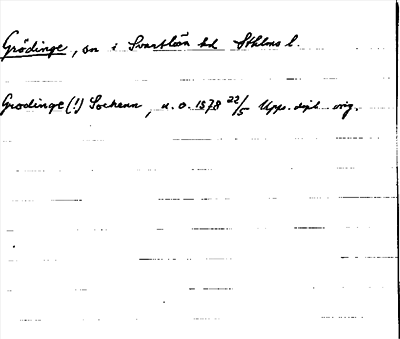 Grödinge, sn i Svartlösa hd Sthlms l.
Grodinge (!) Sockenn, u.o. 1578 22/5 Upps. dipl. orig.